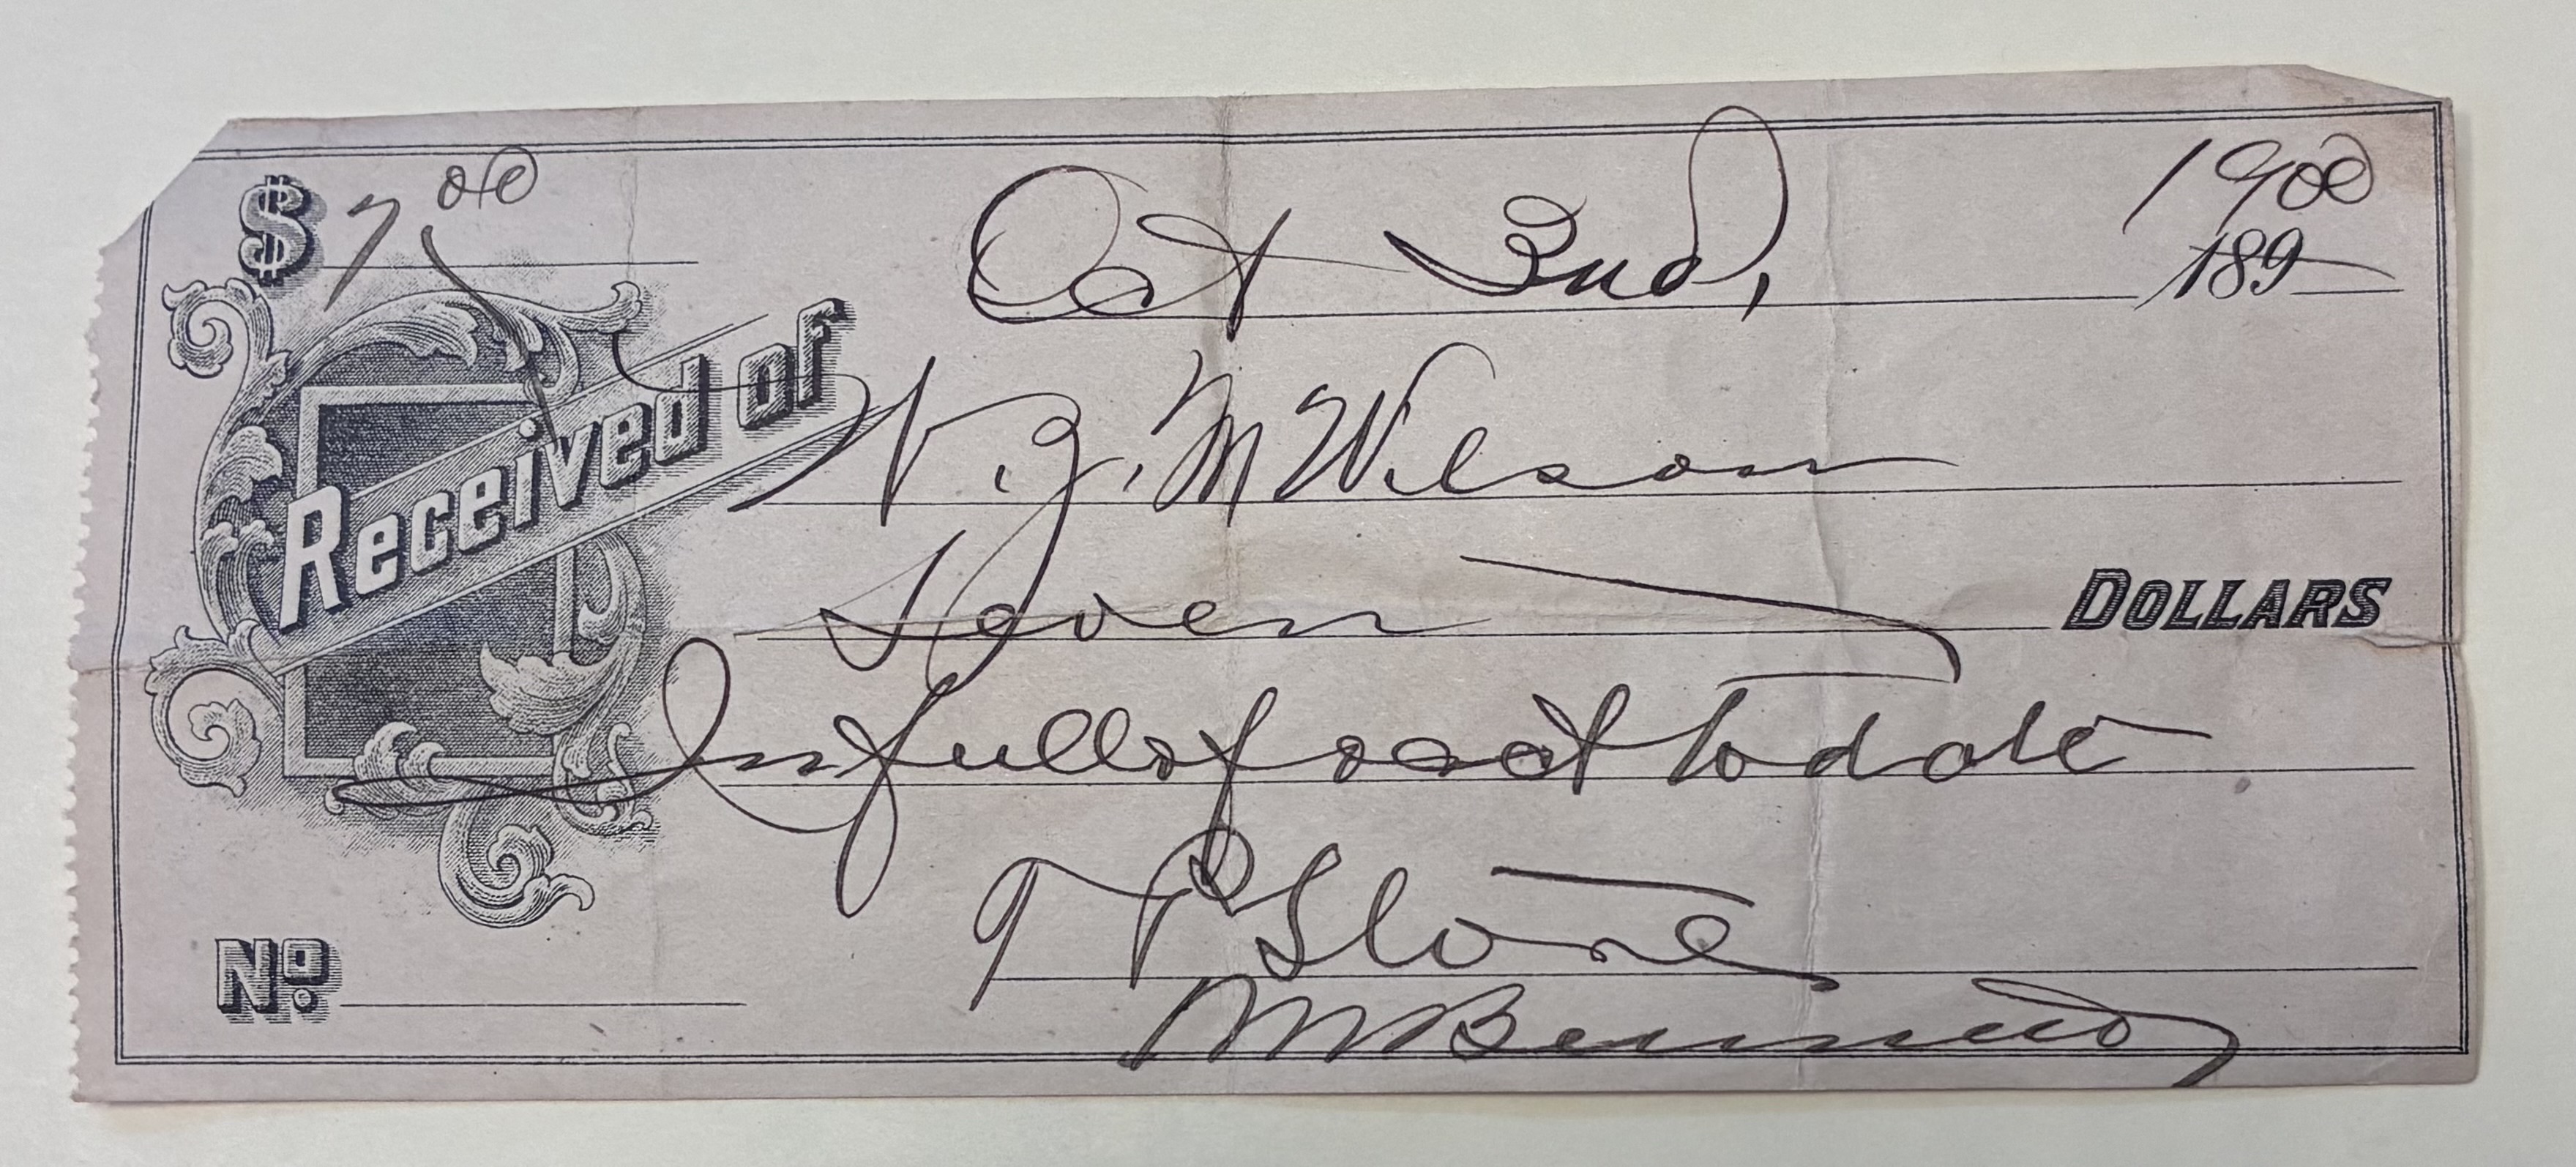 $ 7.00 Oct 3nd, 1900
189
Received of N. J. M Wilson
Seven DOLLARS
In full of acct to date
T P Slone
No. M Bennett